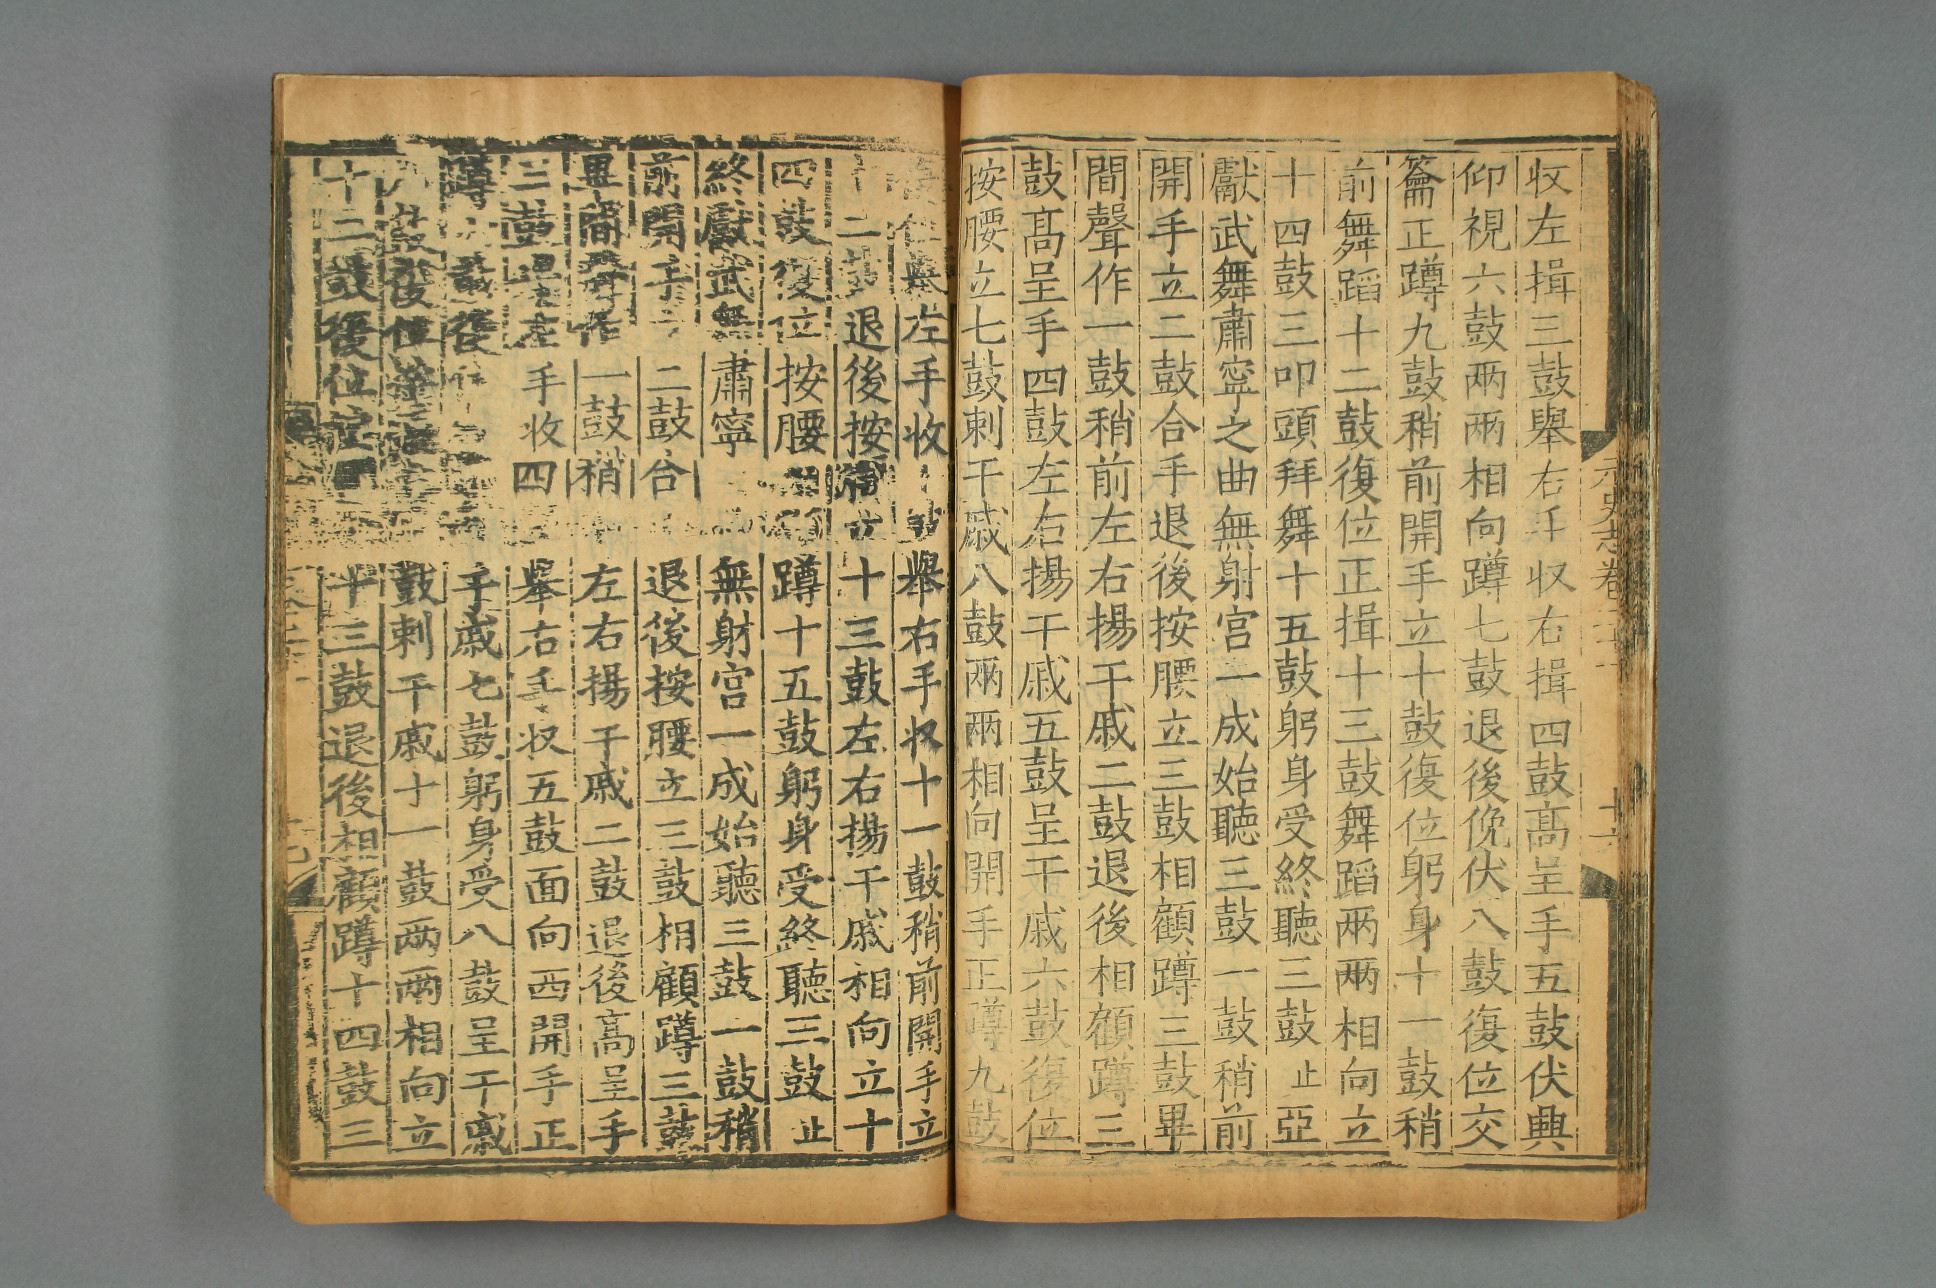 收左揖三鼓舉右手收右揖四鼓高呈手五鼓伏興
仰視六鼓兩兩相向蹲七鼓退後俛伏八鼓復位交
籥正蹲九鼓稍前開手立十鼓復位躬身十一鼓稍
前舞蹈十二鼓復位正揖十三鼓舞蹈兩兩相向立
十四鼓三叩頭拜舞十五鼓躬身受終聽三鼓止亞
獻武舞肅寧之曲無射宮一成始聽三鼓一鼓稍前
開手立二鼓合手退後按腰立三鼓相顧蹲三鼓畢
間聲作一鼓稍前左右揚干戚二鼓退後相顧蹲三
鼓高呈手四鼓左右揚干戚五鼓呈干戚六鼓復位
按腰立七鼓刺干戚八鼓兩兩相向開手正蹲九鼓
左手收舉右手收十一鼓稍前開手立
十二退後按立十三鼓左右揚干戚相向立十
四鼓復位按腰蹲十五鼓躬身受終聽三鼓止
終獻武舞肅寧無射宮一成始聽三鼓一鼓稍
前開手二鼓合退後按腰立三鼓相顧蹲三鼓
畢間聲作一鼓稍左右揚干戚二鼓退後高呈手
三鼓左手收四舉右手收五鼓面向西開手正
蹲鼓復手戚七鼓躬身受八鼓呈干戚
鼓復位鼓刺干戚十一鼓兩兩相向立
十二鼓復位十三鼓退後相顧蹲十四鼓三
元史志卷二十